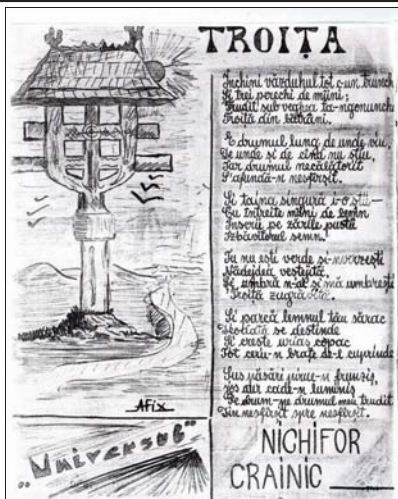 TROIȚA
Închini văzduhul tot c-un trunchi
Și trei perechi de mîini;
Trudit sub veghea ta-ngenunchi
Troiță din bătrîni.
E drumul lung de unde viu,
De unde și de cînd nu știu,
Iar drumul necălătorit
S'afundă-n nesfîrșit.
Și taina singură i-o știi—
Cu întreite mîini de lemn
Înscrii pe zările pustii
Izbăvitorul semn.
Tu nu ești verde și-nverzești
Nădejdea veștejită,
Și umbră n-ai și mă umbrești
Troiță zugrăvită.
Și parcă lemnul tău sărac
Deodată se destinde
Și crește uriaș copac
Tot ceru-n brațe de-l cuprinde
Sus păsări ciruie-n frunziș,
Jos dîr cade-n luminiș
Pe drum-pe drumul meu trudit
Din nesfîrșit spre nesfîrșit.
Afix
„Universul"
NICHIFOR
CRAINIC